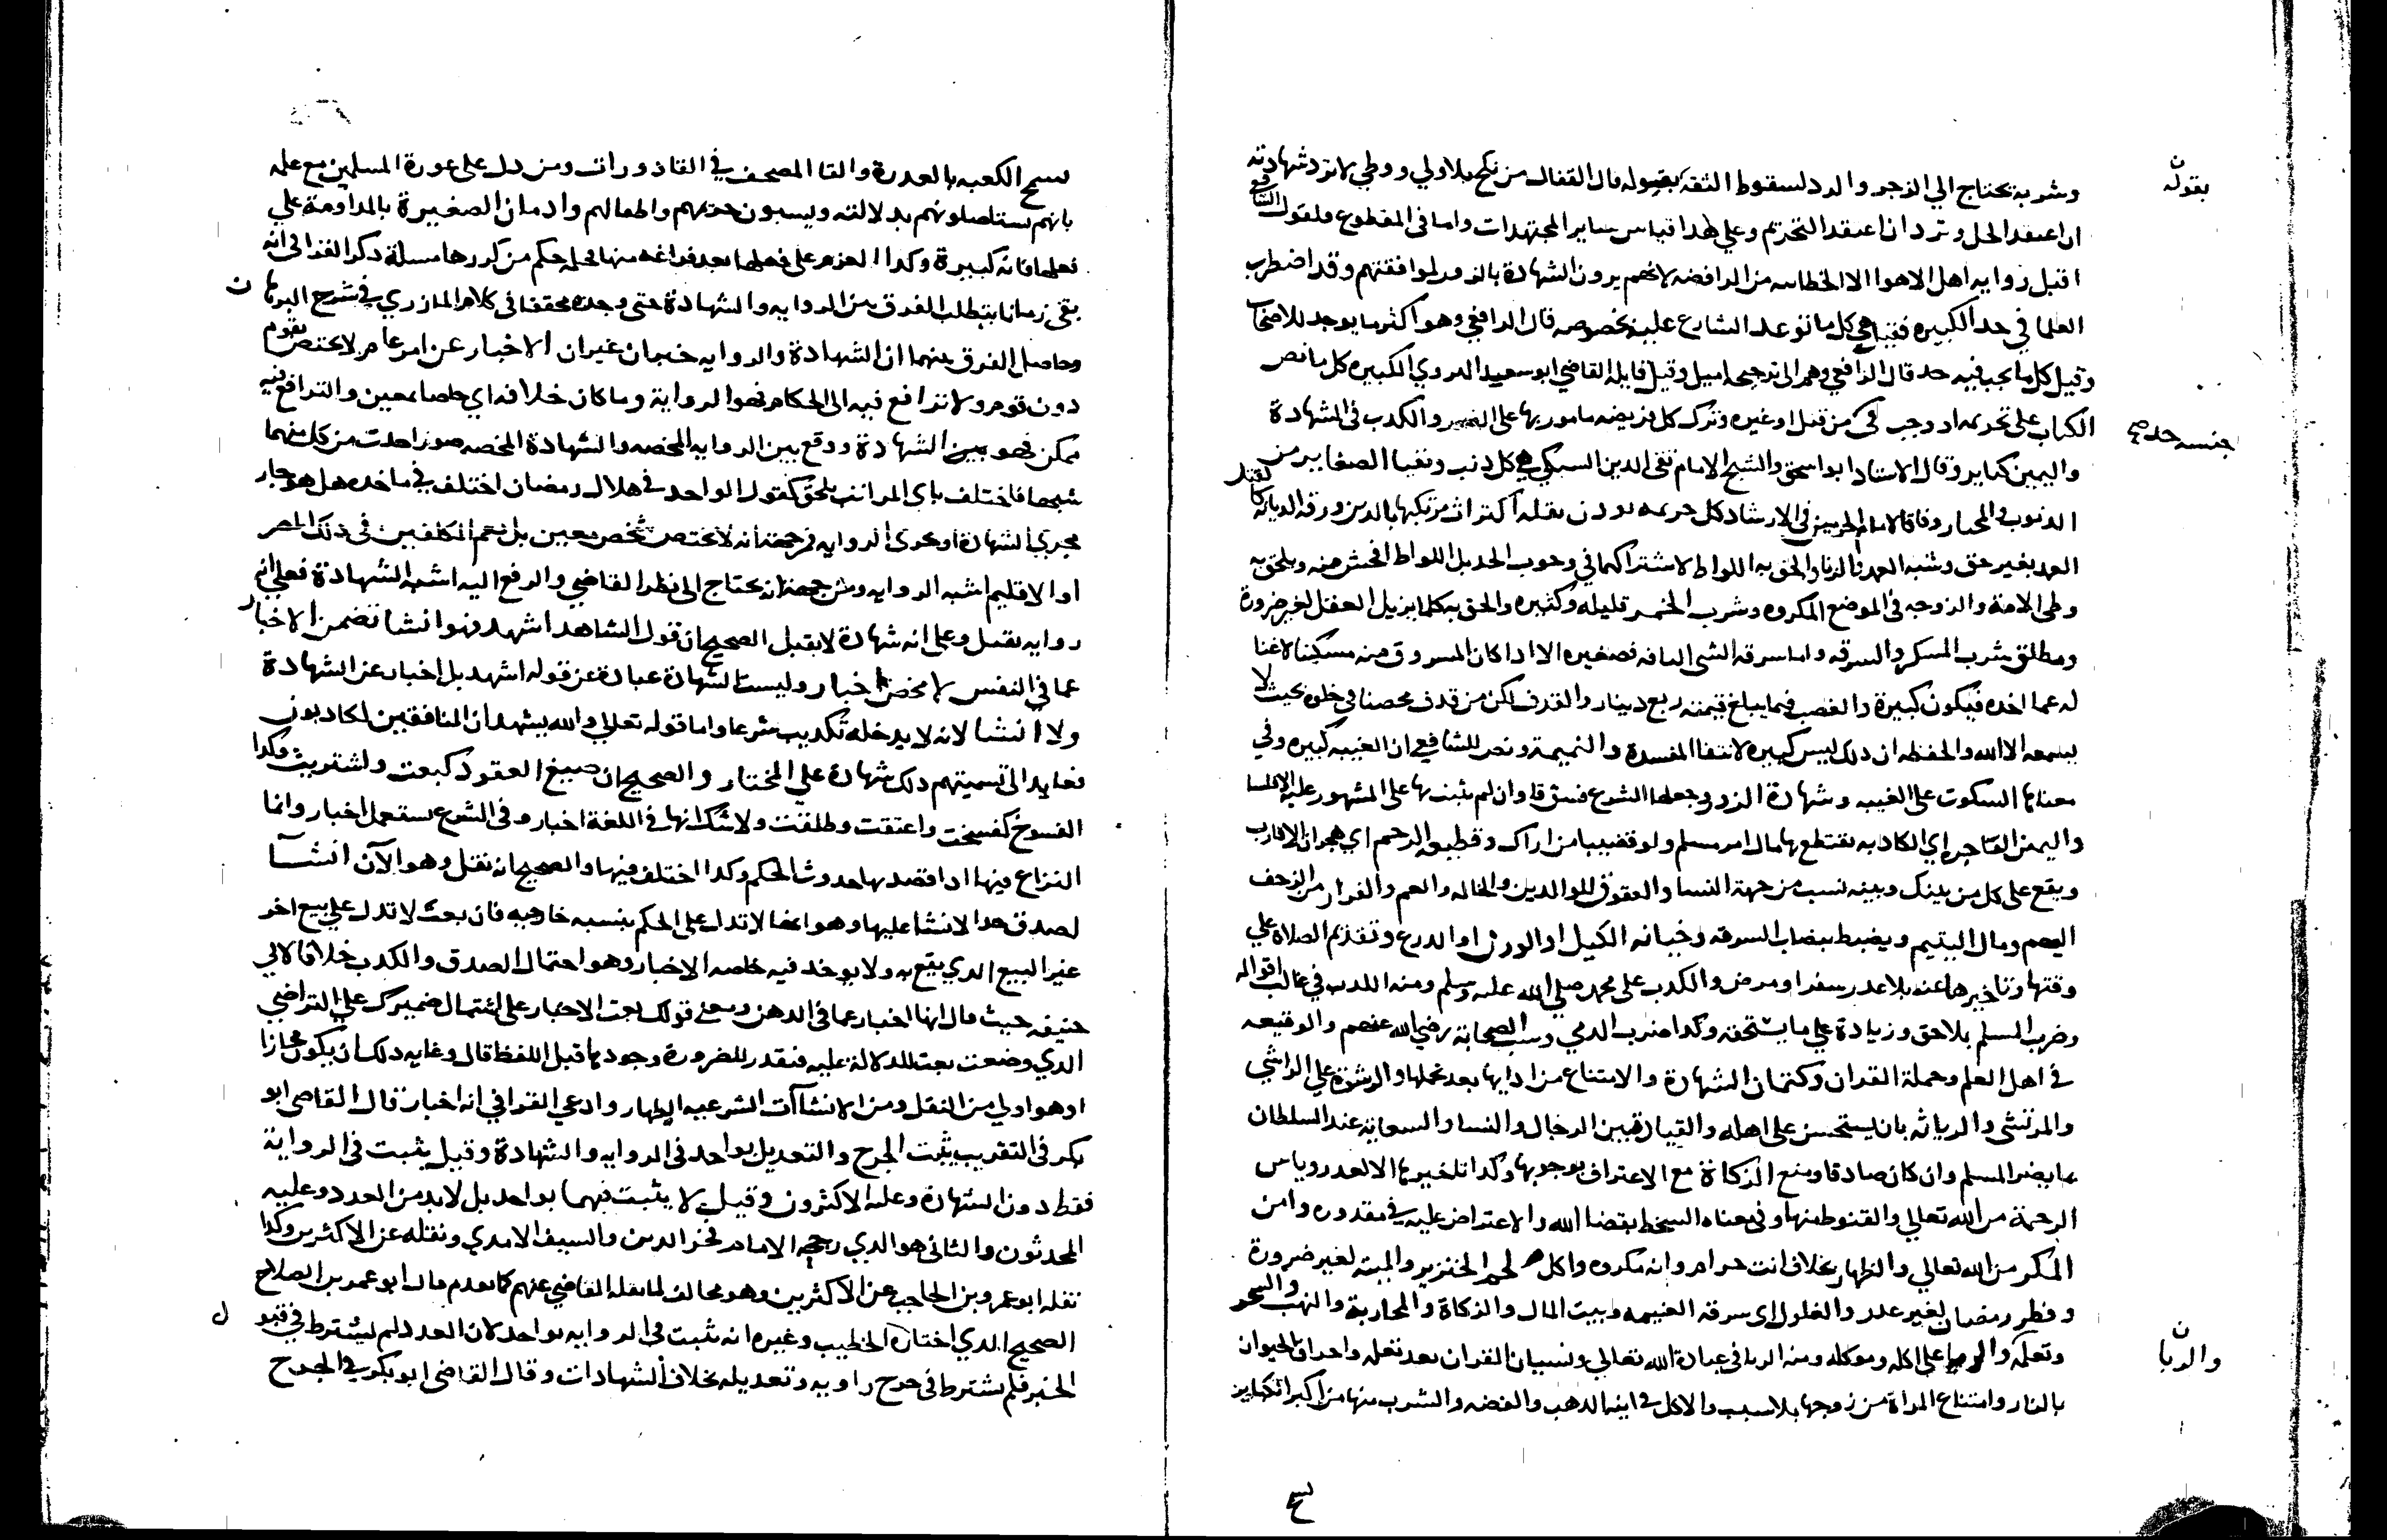 وشربه يحتاج الي الزجر والرد لسقوط الثقة بقوله قال القفال من نكح بلا ولي ووطي لا ترد شهادته
ان اعتقد الحل وترد ان اعتقد التحريم وعلي هذا قياس ساير المجتهدات واما في المقطوع فلقول الشافعي
اقبل روايه اهل الاهوا الا الخطابيه من الرافضه لانهم يرون الشهادة بالزور لموافقتهم وقد اضطرب
العلما في حد الكبيره فقيل هي كل ما توعد الشارع عليه بخصوصه قال الرافعي وهو اكثر ما يوجد للاصحاب
وقيل كل ما يجب فيه حد قال الرافعي وهم الى ترجيحه اميل وقيل قايله القاضي ابو سعيد الهروي الكبيره كل ما نص
الكتاب على تحريمه او وجب في من قتل او غيره وترك كل فريضه مامور بها على الفور والكدب في الشهادة
واليمين كباير وقال الاستاد ابو اسحق والشيخ الامام تقي الدين السبكي هي كل ذنب ونفيا الصغاير من
الذنوب والمختار وفاقا لامام الحرمين في الارشاد كل جريمه تودن بقله اكتراث مرتكبها بالدين ورقه الديانه كالقتل
العمد بغير حق وشبه العمد والزنا والحق به اللواط لاشتراكهما في وجوب الحد بل اللواط افحش منه ويلحق به
وطي الامة والزوجه في الموضع المكروه وشرب الخمر قليله وكثيره والحق به كلما يزيل العقل لغير ضرورة
ومطلق شرب المسكر والسرقه واما سرقه الشي التافه فصغيره الا اذا كان المسروق منه مسكينا لا غنا
له عما اخذه فيكون كبيرة والغصب فيما يبلغ قيمته ربع دينار والقذف لكن من قدف محصنا في خلوه بحيث لا
يسمعه الا الله والحفظه ان ذلك ليس كبيره لانتفا المفسدة والنميمة ونص للشافعي ان الغيبه كبيره وفي
معناها السكوت على الغيبه وشهادة الزور وجعلها الشرع فسقا وان لم يثبت بها على المشهور عليه الا فلسا
واليمين الفاجره اي الكادبه يقتطع بها مال امر مسلم ولو قضيبا من اراك وقطيعه الرحم اي هجران الاقارب
ويقع على كل من بينك وبينه نسب من جهة النسا والعقوق للوالدين والخاله والعم والفرار من الزحف
ومال اليتيم ويضبط بنصاب السرقه وخيانه الكيل او الوزن او الدرع وتقديم الصلاة علي
وقتها وتاخيرها عنه بلا عدر سفر او مرض والكدب على محمد صلي الله عليه وسلم ومنه الكدب في غالب اقواله
وضرب المسلم بلا حق وزيادة علي ما يستحقه وكدا ضرب الدمي وسب الصحابة رضي الله عنهم والوقيعه
في اهل العلم وحملة القران وكتمان الشهادة والامتناع من ادايها بعد تحملها والرشوة علي الراشي
والمرتشي والدياثه بان يستحسن على اهله والقياده بين الرجال والنسا والسعاية عند السلطان
بما يضر المسلم وان كان صادقا ومنع الزكاة مع الاعتراف بوجوبها وكدا تاخيرها الا لعدر وياس
الرحمة من الله تعالي والقنوط منها وفي معناه السخط بقضا الله والاعتراض عليه في مقدوره وامن
المكر من الله تعالي والظهار بخلاف انت حرام وانه مكروه واكل لحم الخنزير والميتة لغير ضرورة
وفطر رمضان لغير عدر والغلول اى سرقه الغنيمه وبيت المال والزكاة والمحاربة والنهب والسحر
وتعلمه والربا على اكله وموكله ومنه الربا في عبادة الله تعالي ونسيان القران بعد تعلمه واحراق الحيوان
بالنار وامتناع المراة من زوجها بلا سبب والاكل في انيه الدهب والفضه والشرب منها من اكبر الكباير
بقوله ن
جنسه حد صح
والربا ن
الكعبه بالعدرة والقا المصحف في القاذورات ومن دل على عورة المسلمين مع علمه
بانهم يستاصلونهم بدلالته ويسبون حرمهم واطفالهم وادمان الصغيرة بالمداومة علي
فعلها فانه كبيرة وكدا العزم على فعلها بعد فراغه منها فحكمه حكم من كررها مسلة دكر القرافي انه
بقي زمانا يتطلب الفرق بين الروايه والشهادة حتى وجده محققا في كلام المازري في شرح البرهان
وحاصل الفرق بينهما ان الشهادة والروايه خبران غير ان الاخبار عن امر عام لا يختص بقوم
دون قوم ولا ترافع فيه الى الحكام فهو الرواية وما كان خلافه اي خاصا بمعين والترافع فيه
ممكن فهو الشهادة ووقع بين الروايه المحضه والشهادة المحضه صور اخدت من كل منهما
شبها فاختلف باى المراتب يلحق كقول الواحد في هلال رمضان اختلف في ماخذه هل هو جار
مجرى الشهادة او مجرى الروايه فمن جهة انه لا يختص شخص معين بل نعم المكلفين في ذلك المصر
او الاقليم اشبه الروايه ومن جهة انه يحتاج الى نظر القاضي والرفع اليه اشبه الشهادة فعلي انه
روايه يقبل وعلى انه شهادة لا يقبل الصحيح ان قول الشاهد اشهد فهو انشا تضمن الاخبار
عما في النفس لا محض اخبار وليست الشهادة عبارة عن قوله اشهد بل اخبار عن الشهادة
ولا انشا لانه لا يدخله تكديب شرعا واما قوله تعالي والله يشهد ان المنافقين لكادبون
فعايد الى تسميتهم دلك شهادة علي المختار والصحيح ان صيغ العقود كبعت واشتريت وكدا
الفسوخ كفسخت واعتقت وطلقت ولا شك انها في اللغة اخبار وفي الشرع يستعمل اخبار وانما
النزاع فيها ادا قصد بها حدوث الحكم وكدا اختلف فيها والصحيح انه نقل وهو الآن انشآ
لصدق حد الانشا عليها وهو انها لا تدل على الحكم بنسبه خارجيه فان بعت لا تدل علي بيع اخر
غير البيع الدي يقع به ولا يوخد فيه خاصه الاخبار وهو احتمال الصدق والكدب خلافا لابي
حنيفه حيث قال انها اخبار عما في الدهن ومعنى قولك بعت الاخبار على اشتمال ضميرك علي التراضي
الدي وضعت بعت للدلالة عليه فيقدر للضرورة وجودها قبل اللفظ قال وغايه دلك ان يكون مجازا
وهو اولي من النقل ومن الانشاآت الشرعيه الظهار وادعي القرافي انه اخبار قال القاضي ابو
بكر في التقريب يثبت الجرح والتعديل بواحد في الروايه والشهادة وقيل يثبت في الرواية
فقط دون الشهادة وعليه الاكثرون وقيل لا يثبت فيهما بواحد بل لابد من العدد وعليه
المحدثون والثاني هو الدي رجحه الامام فخر الدين والسيف الامدي ونقله عن الاكثرين وكدا
نقله ابو عمرو بن الحاجب عن الاكثرين وهو مخالف لما نقله القاضي عنهم كما تقدم قال ابو عمرو بن الصلاح
الصحيح الدي اختاره الخطيب وغيره انه يثبت في الروايه بواحد لان العدد لم يشترط في قبول
الخبر فلم يشترط في جرح راويه وتعديله بخلاف الشهادات وقال القاضي ابو بكر في الجرح